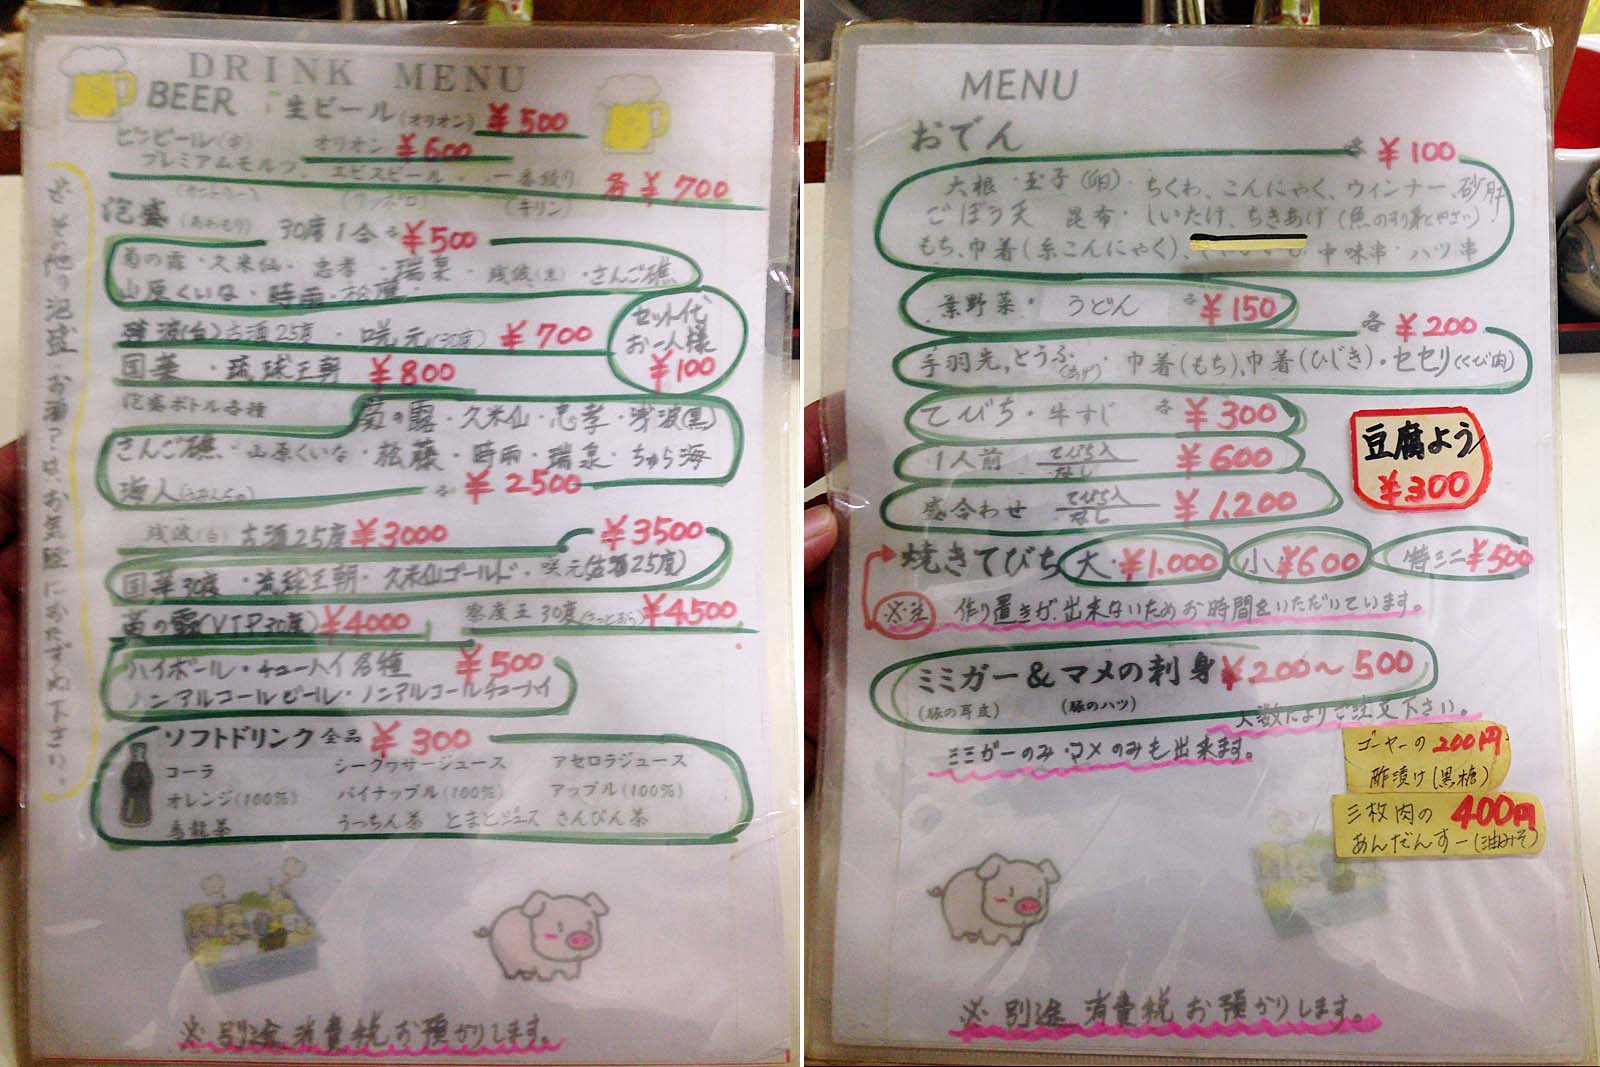 DRINK MENU
BEER 生ビール(オリオン) ¥500
ビンビール オリオン ¥600
プレミアムモルツ、エビスビール・一番絞り 各¥700
(サッポロ) (キリン)
泡盛(あわもり) 30度1合 各¥500
菊の露・久米仙・忠孝・瑞泉・残波(黒)・さんご礁
山原くいな・時雨・松藤
セット代
お一人様
¥100
残波(白)古酒25度・咲元(30度) ¥700
国華・琉球王朝 ¥800
泡盛ボトル各種 菊の露・久米仙・忠孝・残波(黒)
さんご礁・山原くいな・松藤・時雨・瑞泉・ちゅら海
海人(うみんちゅ) 各 ¥2500
残波(白)古酒25度¥3000 ¥3500
国華30度・琉球王朝・久米仙ゴールド・咲元(古酒25度)
菊の露(VIP30度)¥4000 30度 ¥4500
ハイボール・チューハイ各種 ¥500
ノンアルコールビール・ノンアルコールチューハイ
ソフトドリンク 全品 ¥300
コーラ シークヮサージュース アセロラジュース
オレンジ(100%) パイナップル(100%) アップル(100%)
烏龍茶 うっちん茶 とまとジュース さんぴん茶
※別途消費税お預かりします。
その他の泡盛・お酒 お気軽におたずね下さい。
MENU
おでん 各 ¥100
大根・玉子(卵)・ちくわ、こんにゃく、ウィンナー、砂肝
ごぼう天 昆布・しいたけ、ちきあげ(魚のすり身とやさい)
もち、巾着(糸こんにゃく)、中味串・ハツ串
葉野菜・うどん 各¥150
各¥200
手羽先、とうふ(あげ)・巾着(もち)、巾着(ひじき)・セセリ(くび肉)
てびち・牛すじ 各¥300
1人前 てびち入 なし ¥600
盛合わせ てびち入 なし ¥1.200
豆腐よう
¥300
焼きてびち 大・¥1.000 小¥600 特ミニ¥500
※注 作り置きが出来ないためお時間をいただいています。
ミミガー&マメの刺身¥200〜500
(豚の耳皮) (豚のハツ)
人数によりご注文下さい。
ミミガーのみ・マメのみも出来ます。
ゴーヤーの 200円
酢漬け(黒糖)
三枚肉の 400円
あんだんすー(油みそ)
※別途消費税お預かりします。